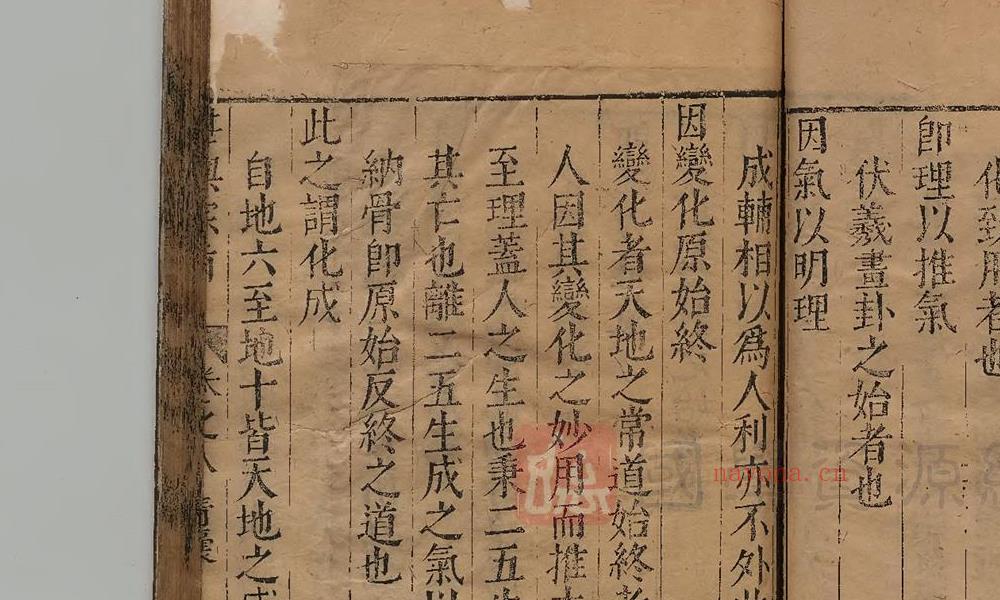 化致用者也
即理以推氣
伏羲畫卦之始者也
因氣以明理
成輔相以爲人利亦不外此
因變化原始終
變化者天地之常道始終者
人因其變化之妙用而推
至理蓋人之生也秉二五
其亡也離二五生成之氣以
納骨即原始反終之道也
此之謂化成
自地六至地十皆天地之成
卷之八
國
資源
nayona.cn